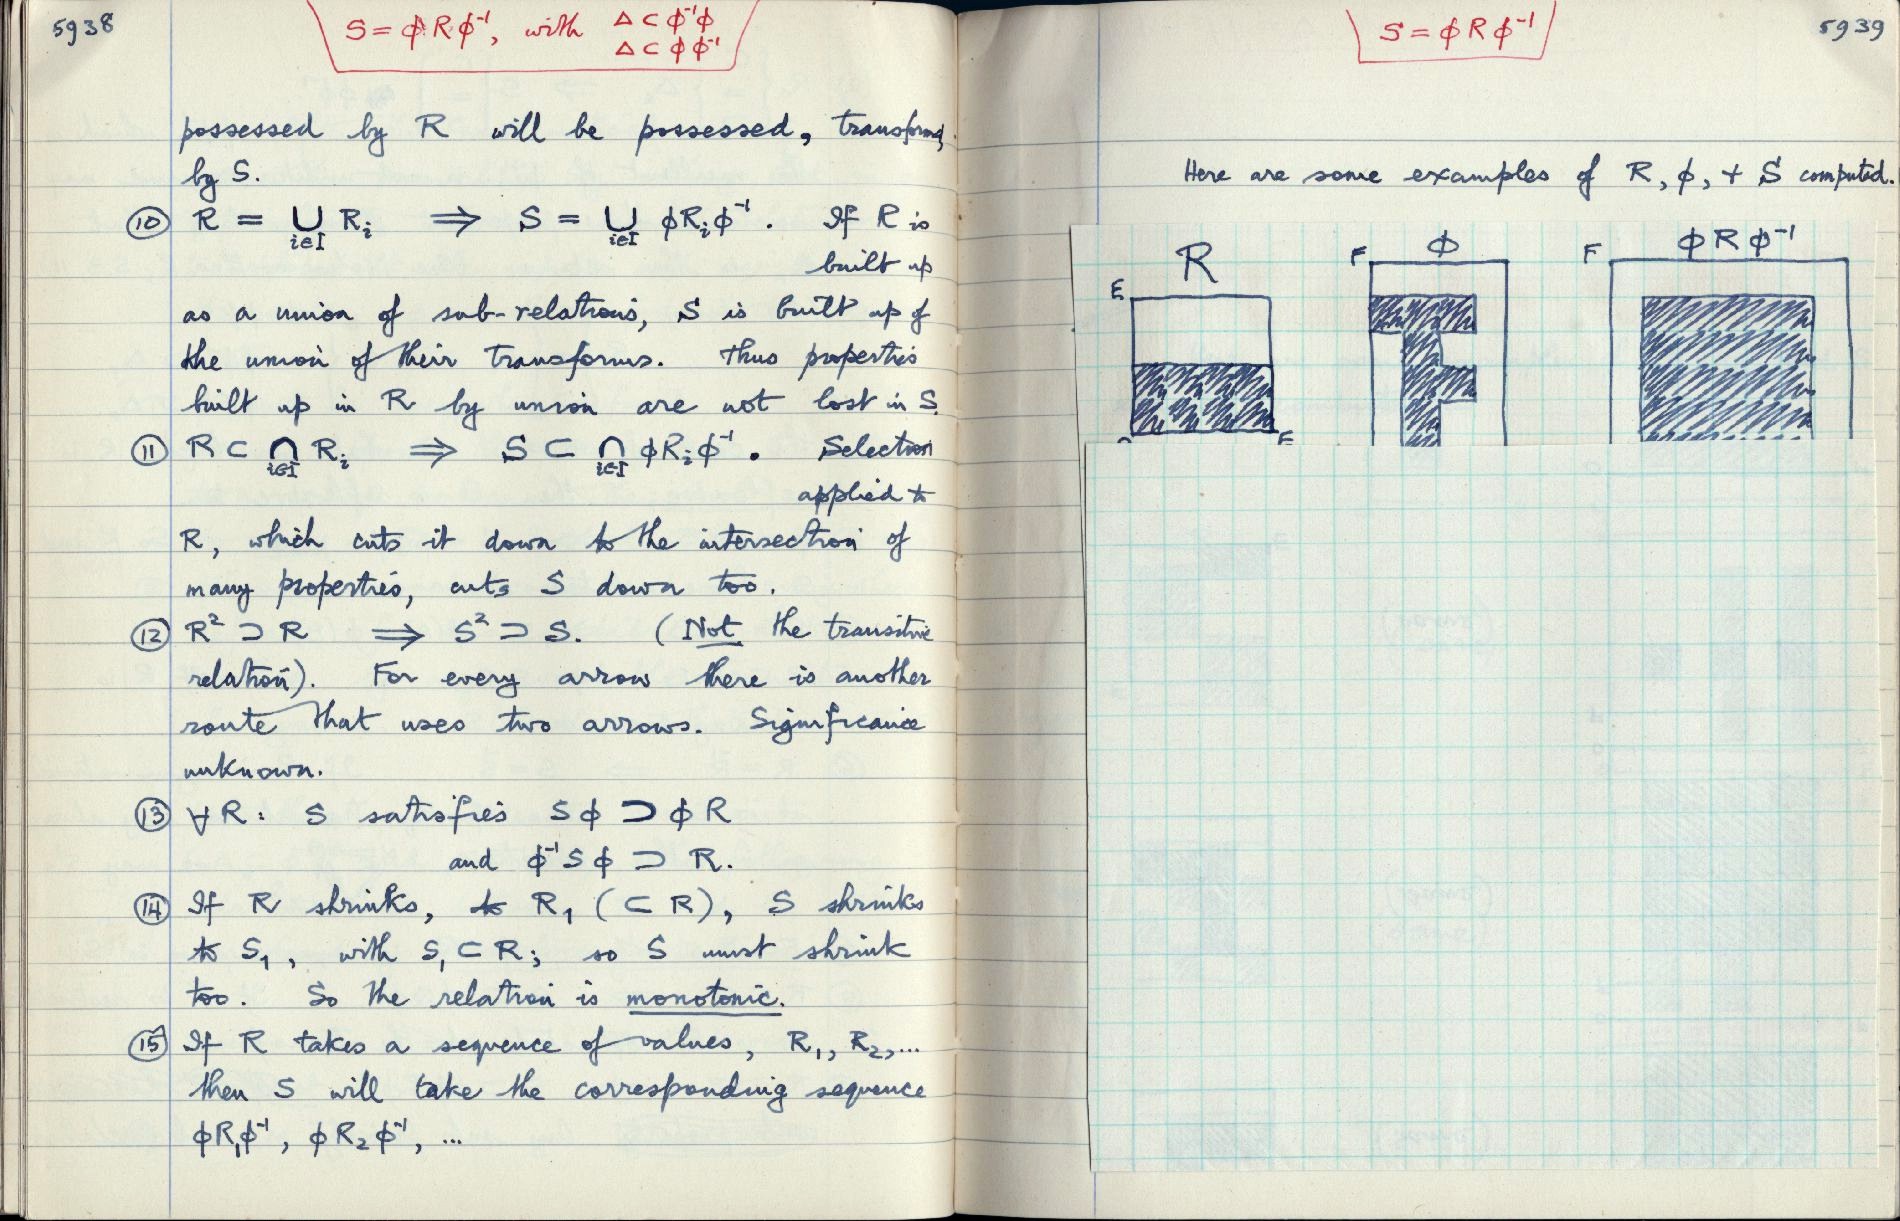 5938
S = ϕRϕ⁻¹, with Δ ⊂ ϕ⁻¹ϕ
Δ ⊂ ϕϕ⁻¹
possessed by R will be possessed, transformed,
by S.
⑩ R = ∪ Rᵢ ⇒ S = ∪ ϕRᵢϕ⁻¹. If R is
i∈I i∈I
built up
as a union of sub-relations, S is built up of
the union of their transforms. Thus properties
built up in R by union are not lost in S.
⑪ R ⊂ ∩ Rᵢ ⇒ S ⊂ ∩ ϕRᵢϕ⁻¹. Selection
i∈I i∈I
applied to
R, which cuts it down to the intersection of
many properties, cuts S down too.
⑫ R² ⊃ R ⇒ S² ⊃ S. (Not the transitive
relation). For every arrow there is another
route that uses two arrows. Significance
unknown.
⑬ ∀R: S satisfies Sϕ ⊃ ϕR
and ϕ⁻¹Sϕ ⊃ R.
⑭ If R shrinks, to R₁ (⊂ R), S shrinks
to S₁, with S₁ ⊂ R; so S must shrink
too. So the relation is monotonic.
⑮ If R takes a sequence of values, R₁, R₂,...
then S will take the corresponding sequence
ϕR₁ϕ⁻¹, ϕR₂ϕ⁻¹, ...
S = ϕRϕ⁻¹
5939
Here are some examples of R, ϕ, + S computed.
R F ϕ F ϕRϕ⁻¹
E